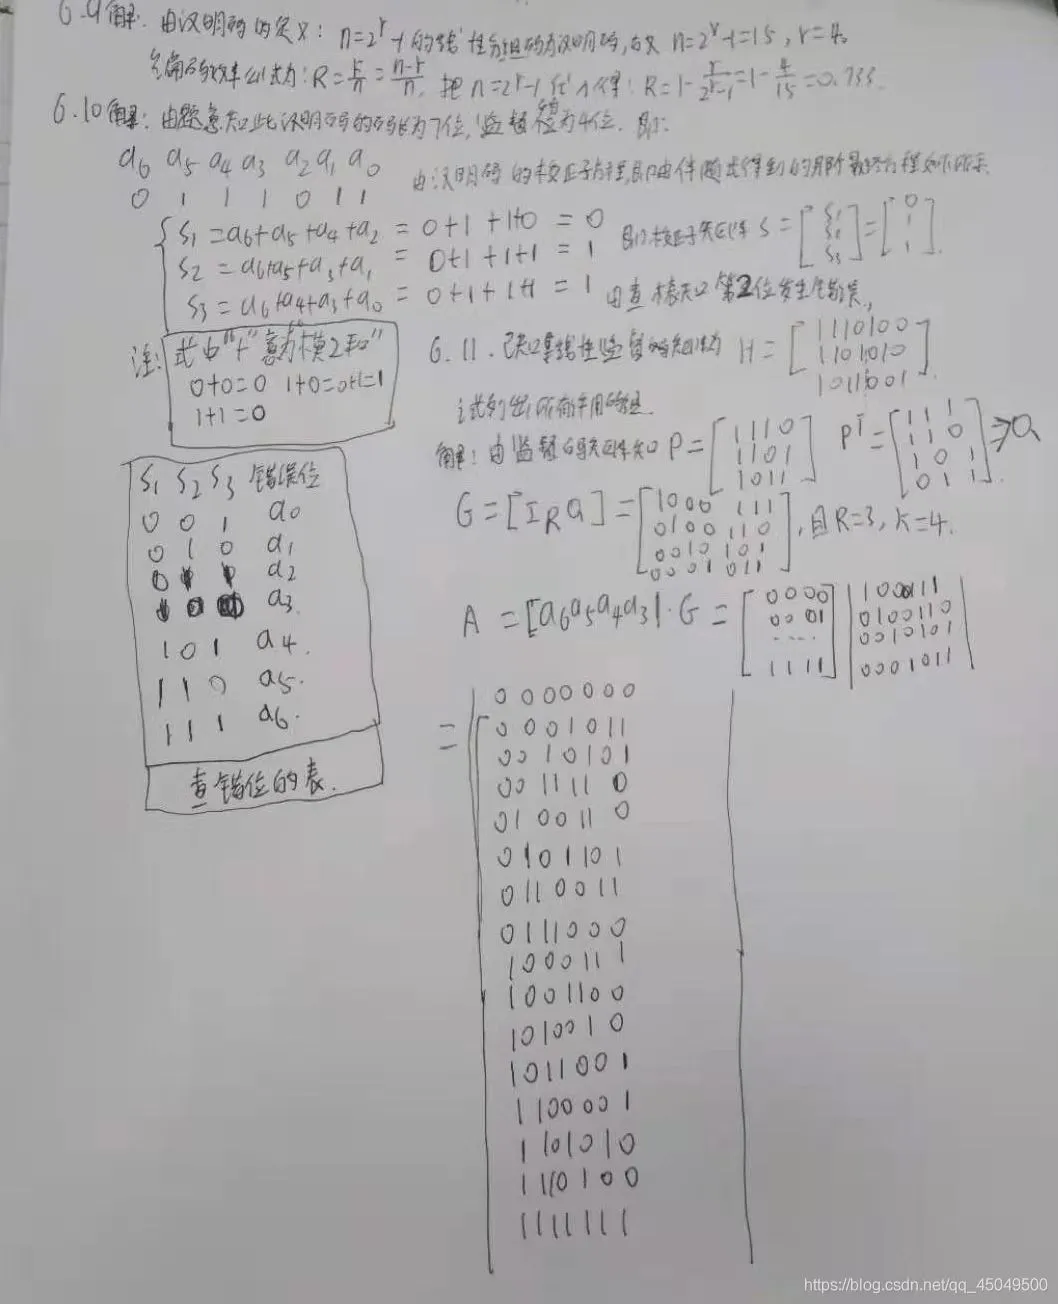 6.9 解: 由汉明码的定义: n=2^r-1 的线性分组码为汉明码, n=2^r-1=15, r=4.
R=k/n=(n-r)/n, 把 n=2^r-1 代入得: R=1-r/(2^r-1)=1-4/15=0.733.
6.10 解: 由题意知此汉明码的码长为7位, 监督位为4位. 即:
a6 a5 a4 a3 a2 a1 a0
0 1 1 1 0 1 1
由汉明码的校正子方程,即由伴随式得到的
S1=a6+a5+a4+a2 = 0+1+1+0 = 0
S2=a6+a5+a3+a1 = 0+1+1+1 = 1
S3=a6+a4+a3+a0 = 0+1+1+1 = 1
即校正子矩阵 S=[S1 S2 S3]=[0 1 1].
由查表知第2位发生错误,
注: 式中"+"意为"模2和"
0+0=0 1+0=0+1=1
1+1=0
S1 S2 S3 错误位
0 0 1 a0
0 1 0 a1
a2
a3
1 0 1 a4.
1 1 0 a5.
1 1 1 a6.
查错位的表.
6.11. 已知某线性监督码矩阵为 H=
1110100
1101010
1011001
试列出所有许用码组.
解: 由监督码矩阵知 P=
1110
1101
1011
P^T=
1 1 1
1 1 0
1 0 1
0 1 1
⇒Q
G=[I_R Q]=
1000 111
0100 110
0010 101
0001 011
, 且R=3, k=4.
A =[a6a5a4a3]·G=
0000
0001
....
1111
1000111
0100110
0010101
0001011
=
0000000
0001011
0010101
0011110
0100110
0101101
0110011
0111000
1000111
1001100
1010010
1011001
1100001
1101010
1110100
1111111
https://blog.csdn.net/qq_45049500